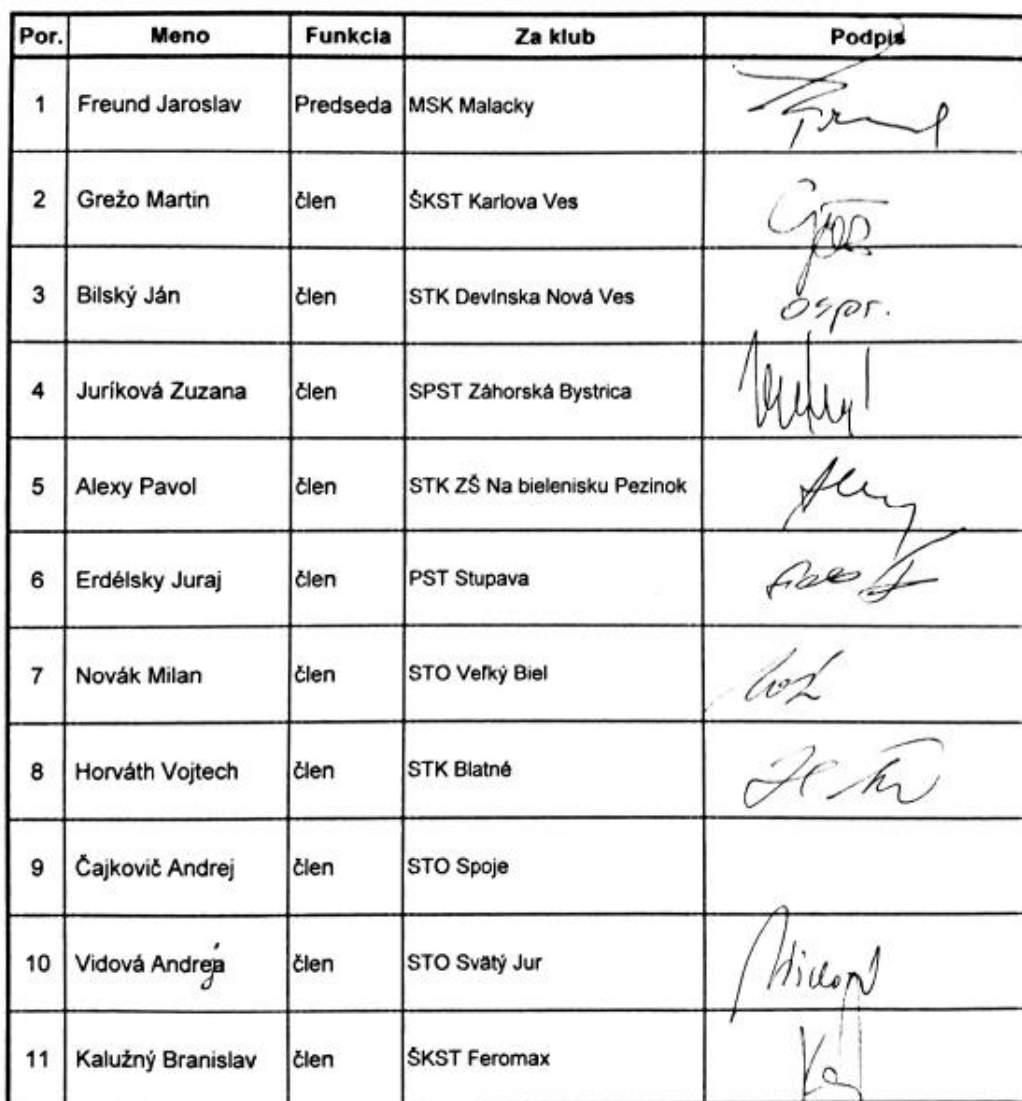 Por. Meno Funkcia Za klub Podpis
1 Freund Jaroslav Predseda MSK Malacky
2 Grežo Martin člen ŠKST Karlova Ves
3 Bilský Ján člen STK Devínska Nová Ves ospr.
4 Juríková Zuzana člen SPST Záhorská Bystrica
5 Alexy Pavol člen STK ZŠ Na bielenisku Pezinok
6 Erdélsky Juraj člen PST Stupava
7 Novák Milan člen STO Veľký Biel
8 Horváth Vojtech člen STK Blatné
9 Čajkovič Andrej člen STO Spoje
10 Vidová Andreja člen STO Svätý Jur
11 Kalužný Branislav člen ŠKST Feromax